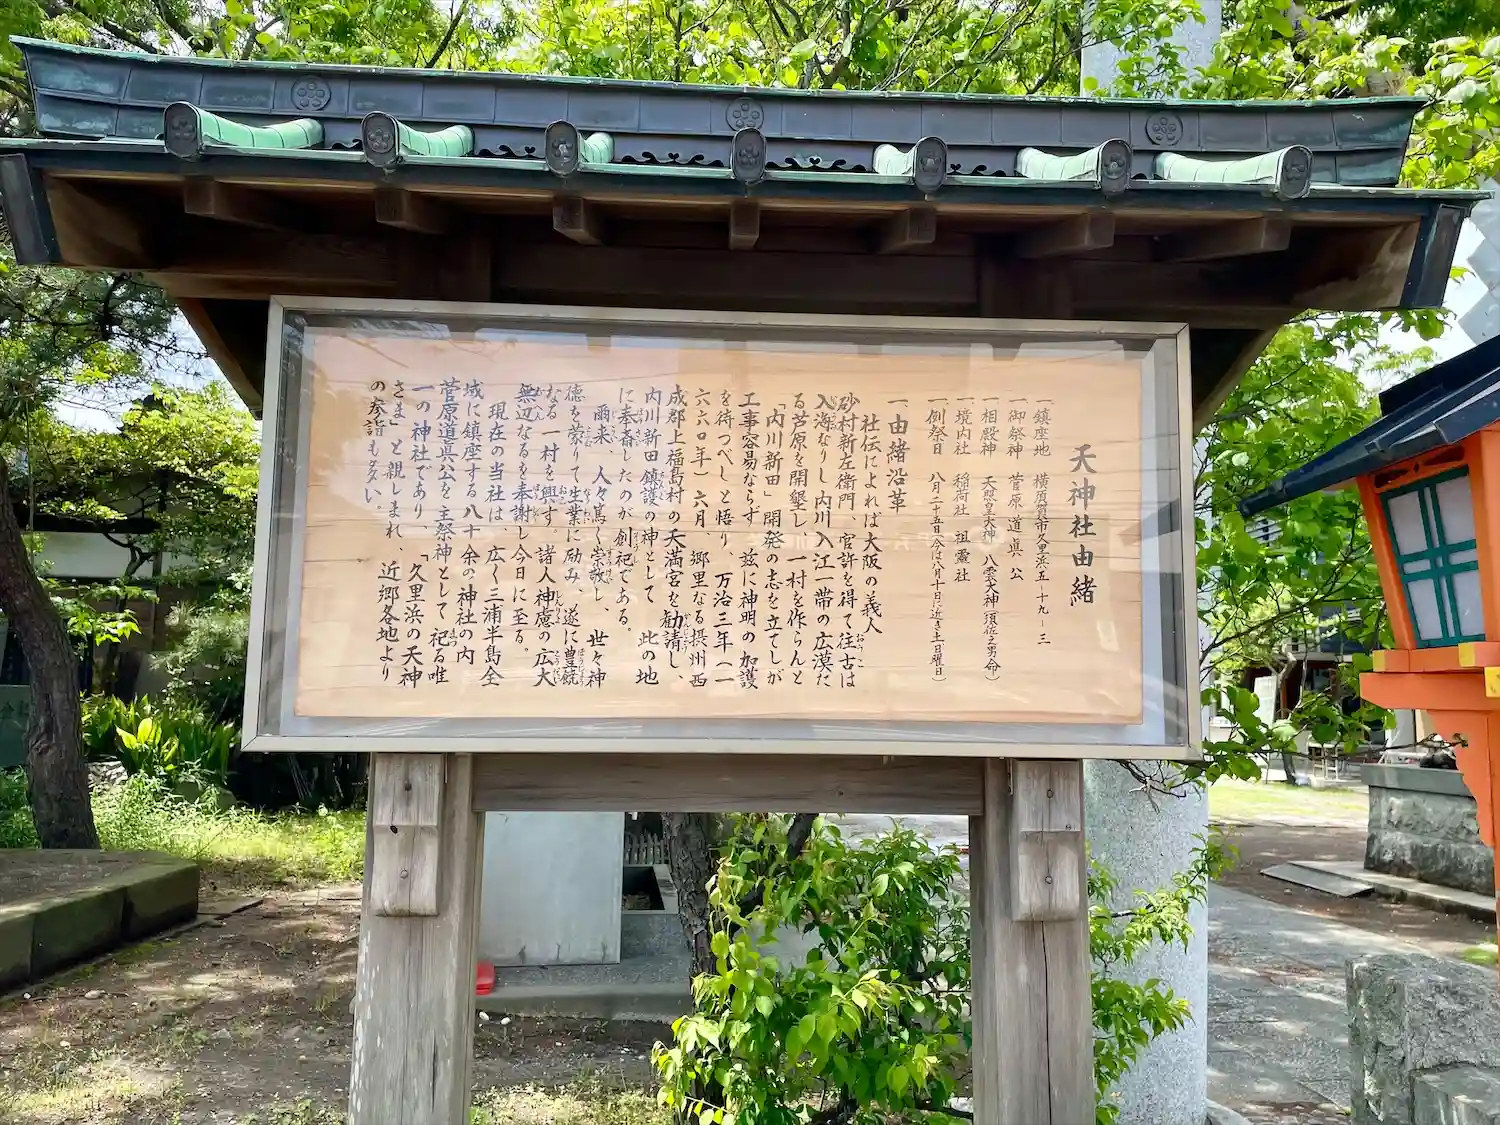 天神社由緒
一鎮座地 横須賀市久里浜五-十九-三
一御祭神 菅原道眞公
一相殿神 天照皇大神 八雲大神(須佐之男命)
一境内社 稲荷社 祖霊社
一例祭日 八月二十五日(今は八月十日に近き土日曜日)
一由緒沿革
社伝によれば大阪の義人
砂村新左衛門、官許を得て往古は
入海なりし内川入江一帯の広漠た
る芦原を開墾し、一村を作らんと
「内川新田」開発の志を立てしが
工事容易ならず、茲に神明の加護
を待つべしと悟り、万治三年(一
六六〇年)六月、郷里なる摂州西
成郡上福島村の天満宮を勧請し、
内川新田鎮護の神として 此の地
に奉斎したのが創祀である。
爾来、人々篤く崇敬し、世々神
徳を蒙りて生業に励み、遂に豊穣
なる一村を興す。諸人神慮の広大
無辺なるを奉謝し今日に至る。
現在の当社は、広く三浦半島全
域に鎮座する八十余の神社の内
菅原道眞公を主祭神として 祀る唯
一の神社であり、「久里浜の天神
さま」と親しまれ、近郷各地より
の参詣も多い。